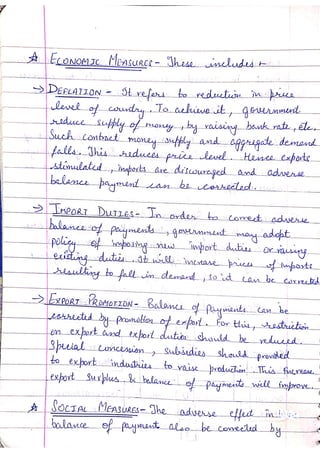 ☆ ECONOMIC MEASURES - These includes :-
→ DEFLATION - It refers to reduction in price
level of country. To achieve it, government
reduce supply of money, by raising bank rate, etc.
Such contract money supply and aggregate demand
falls. This reduces price level. Hence exports
stimulated, imports are discouraged and adverse
balance payment can be corrected.
→ IMPORT DUTIES - In order to correct adverse
balance of payments, government may adopt
policy of imposing new import duties or raising
existing duties. It will increase prices of imports
resulting to fall in demand, so id can be corrected
→ EXPORT PROMOTION - Balance of Payments can be
corrected by promotion of export. For this, restriction
on export and export duties should be reduced.
Special concession, subsidies should provided
to export industries to raise production. This increase
export surplus. & balance of payments will improve.
☆ SOCIAL MEASURES - The adverse effect in
balance of payment also be corrected by